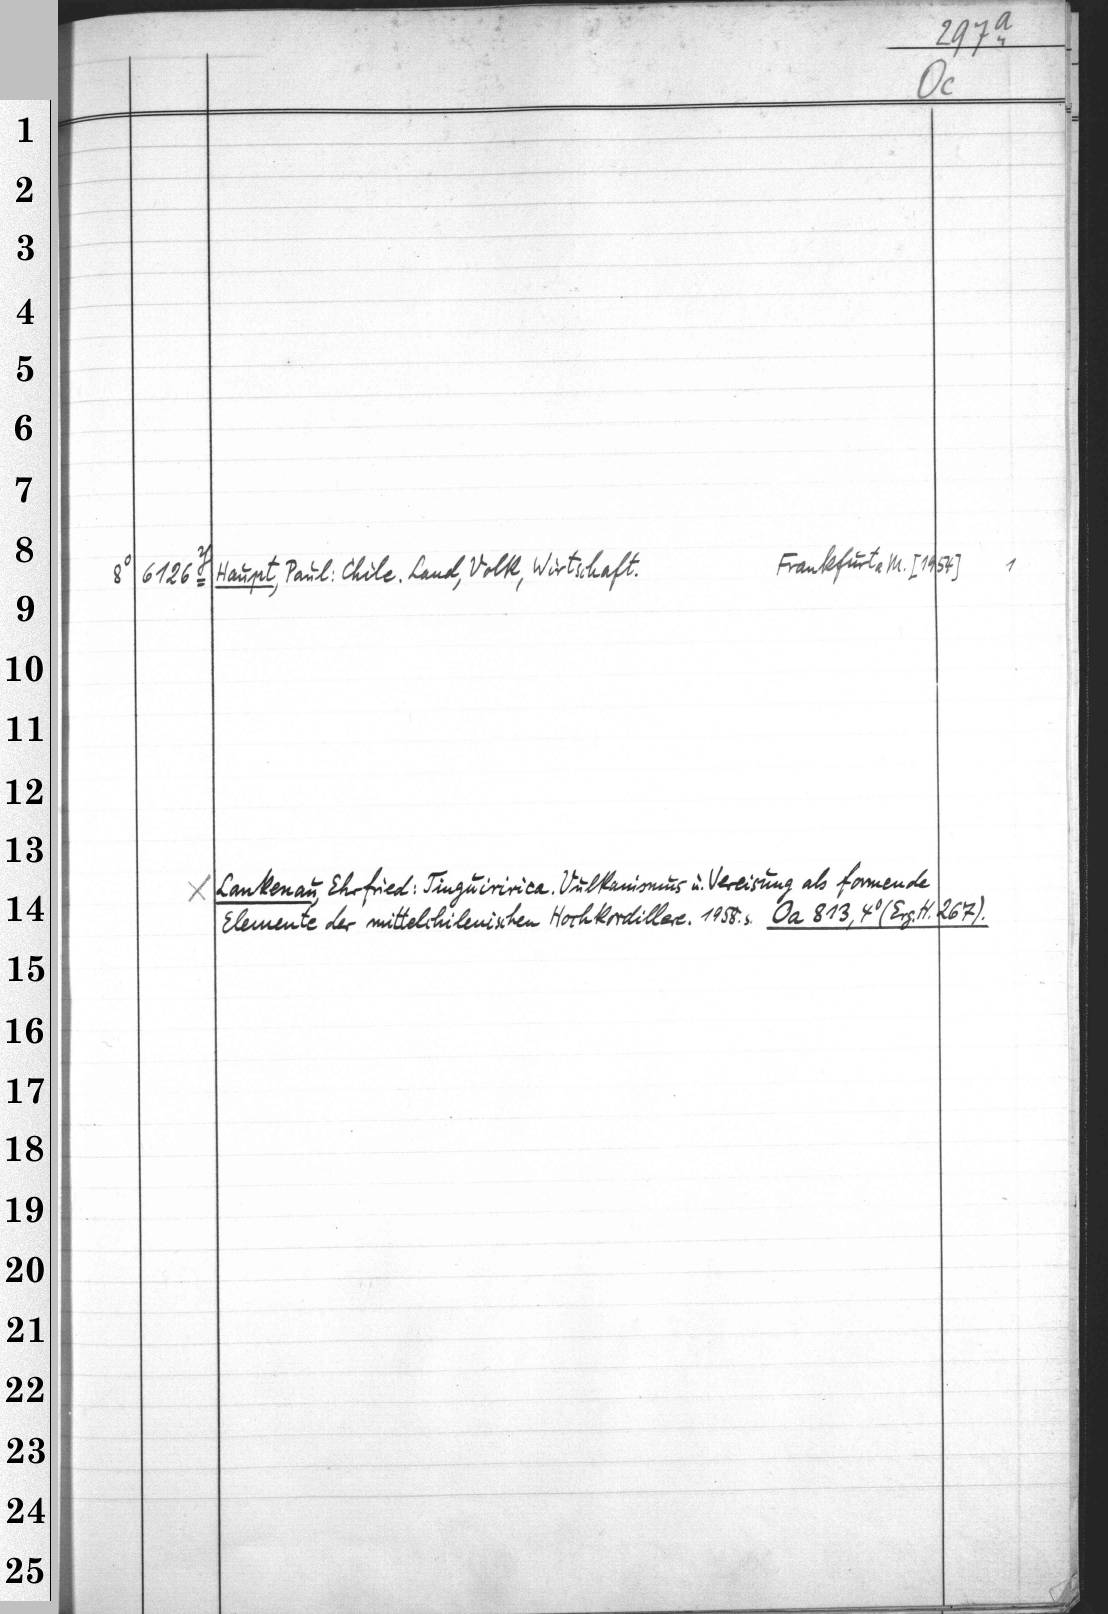 297a
Oc
1
2
3
4
5
6
7
8
8° 6126 y Haupt, Paul: Chile. Land, Volk, Wirtschaft. Frankfurt a M. [1954] 1
9
10
11
12
13
× Lankenau, Ehrfried: Tinguiririca. Vulkanismus u. Vereisung als formende
14
Elemente der mittelchilenischen Hochkordillere. 1958. s. Oa 813, 4° (Erg. H. 267).
15
16
17
18
19
20
21
22
23
24
25